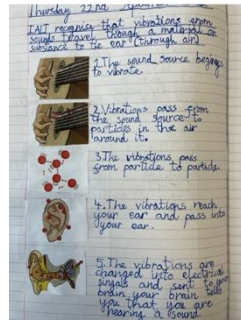 Thursday 22nd
IALT recognise that vibrations from
sounds travel through a material or
substance to the ear (through air)
1. The sound source begins
to vibrate.
2. Vibrations pass from
the sound source to
particles in the air
around it.
3 The vibrations pass
from particle to particle.
4. The vibrations reach
your ear and pass into
your ear.
5. The vibrations are
changed into electrical
singals and sent to your
brain your brain tells
you that you are
hearing a sound